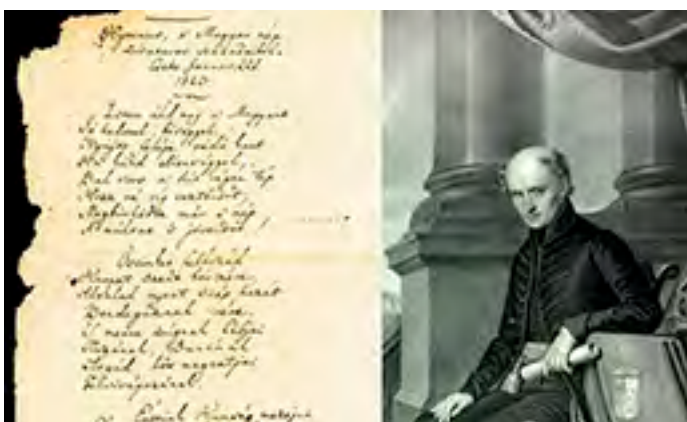 Hymnus, a' Magyar nép
zivataros századaiból.
Cseke
1823
Isten áldd meg a' Magyart
Jó kedvvel, bőséggel,
Nyújts feléje védő kart
Ha küzd ellenséggel;
Bal sors a' kit régen tép
Hozz rá víg esztendőt,
Megbünhődte már e' nép
A' multat 's jövendőt!
Őseinket felhozád
Kárpát szent bérczére
Általad nyert szép hazát
Bendegúznak vére.
'S merre zúgnak habjai
Tiszának, Dunának
Árpád' hős magzatjai
Felvirágozának.
Értünk Kunság mezején